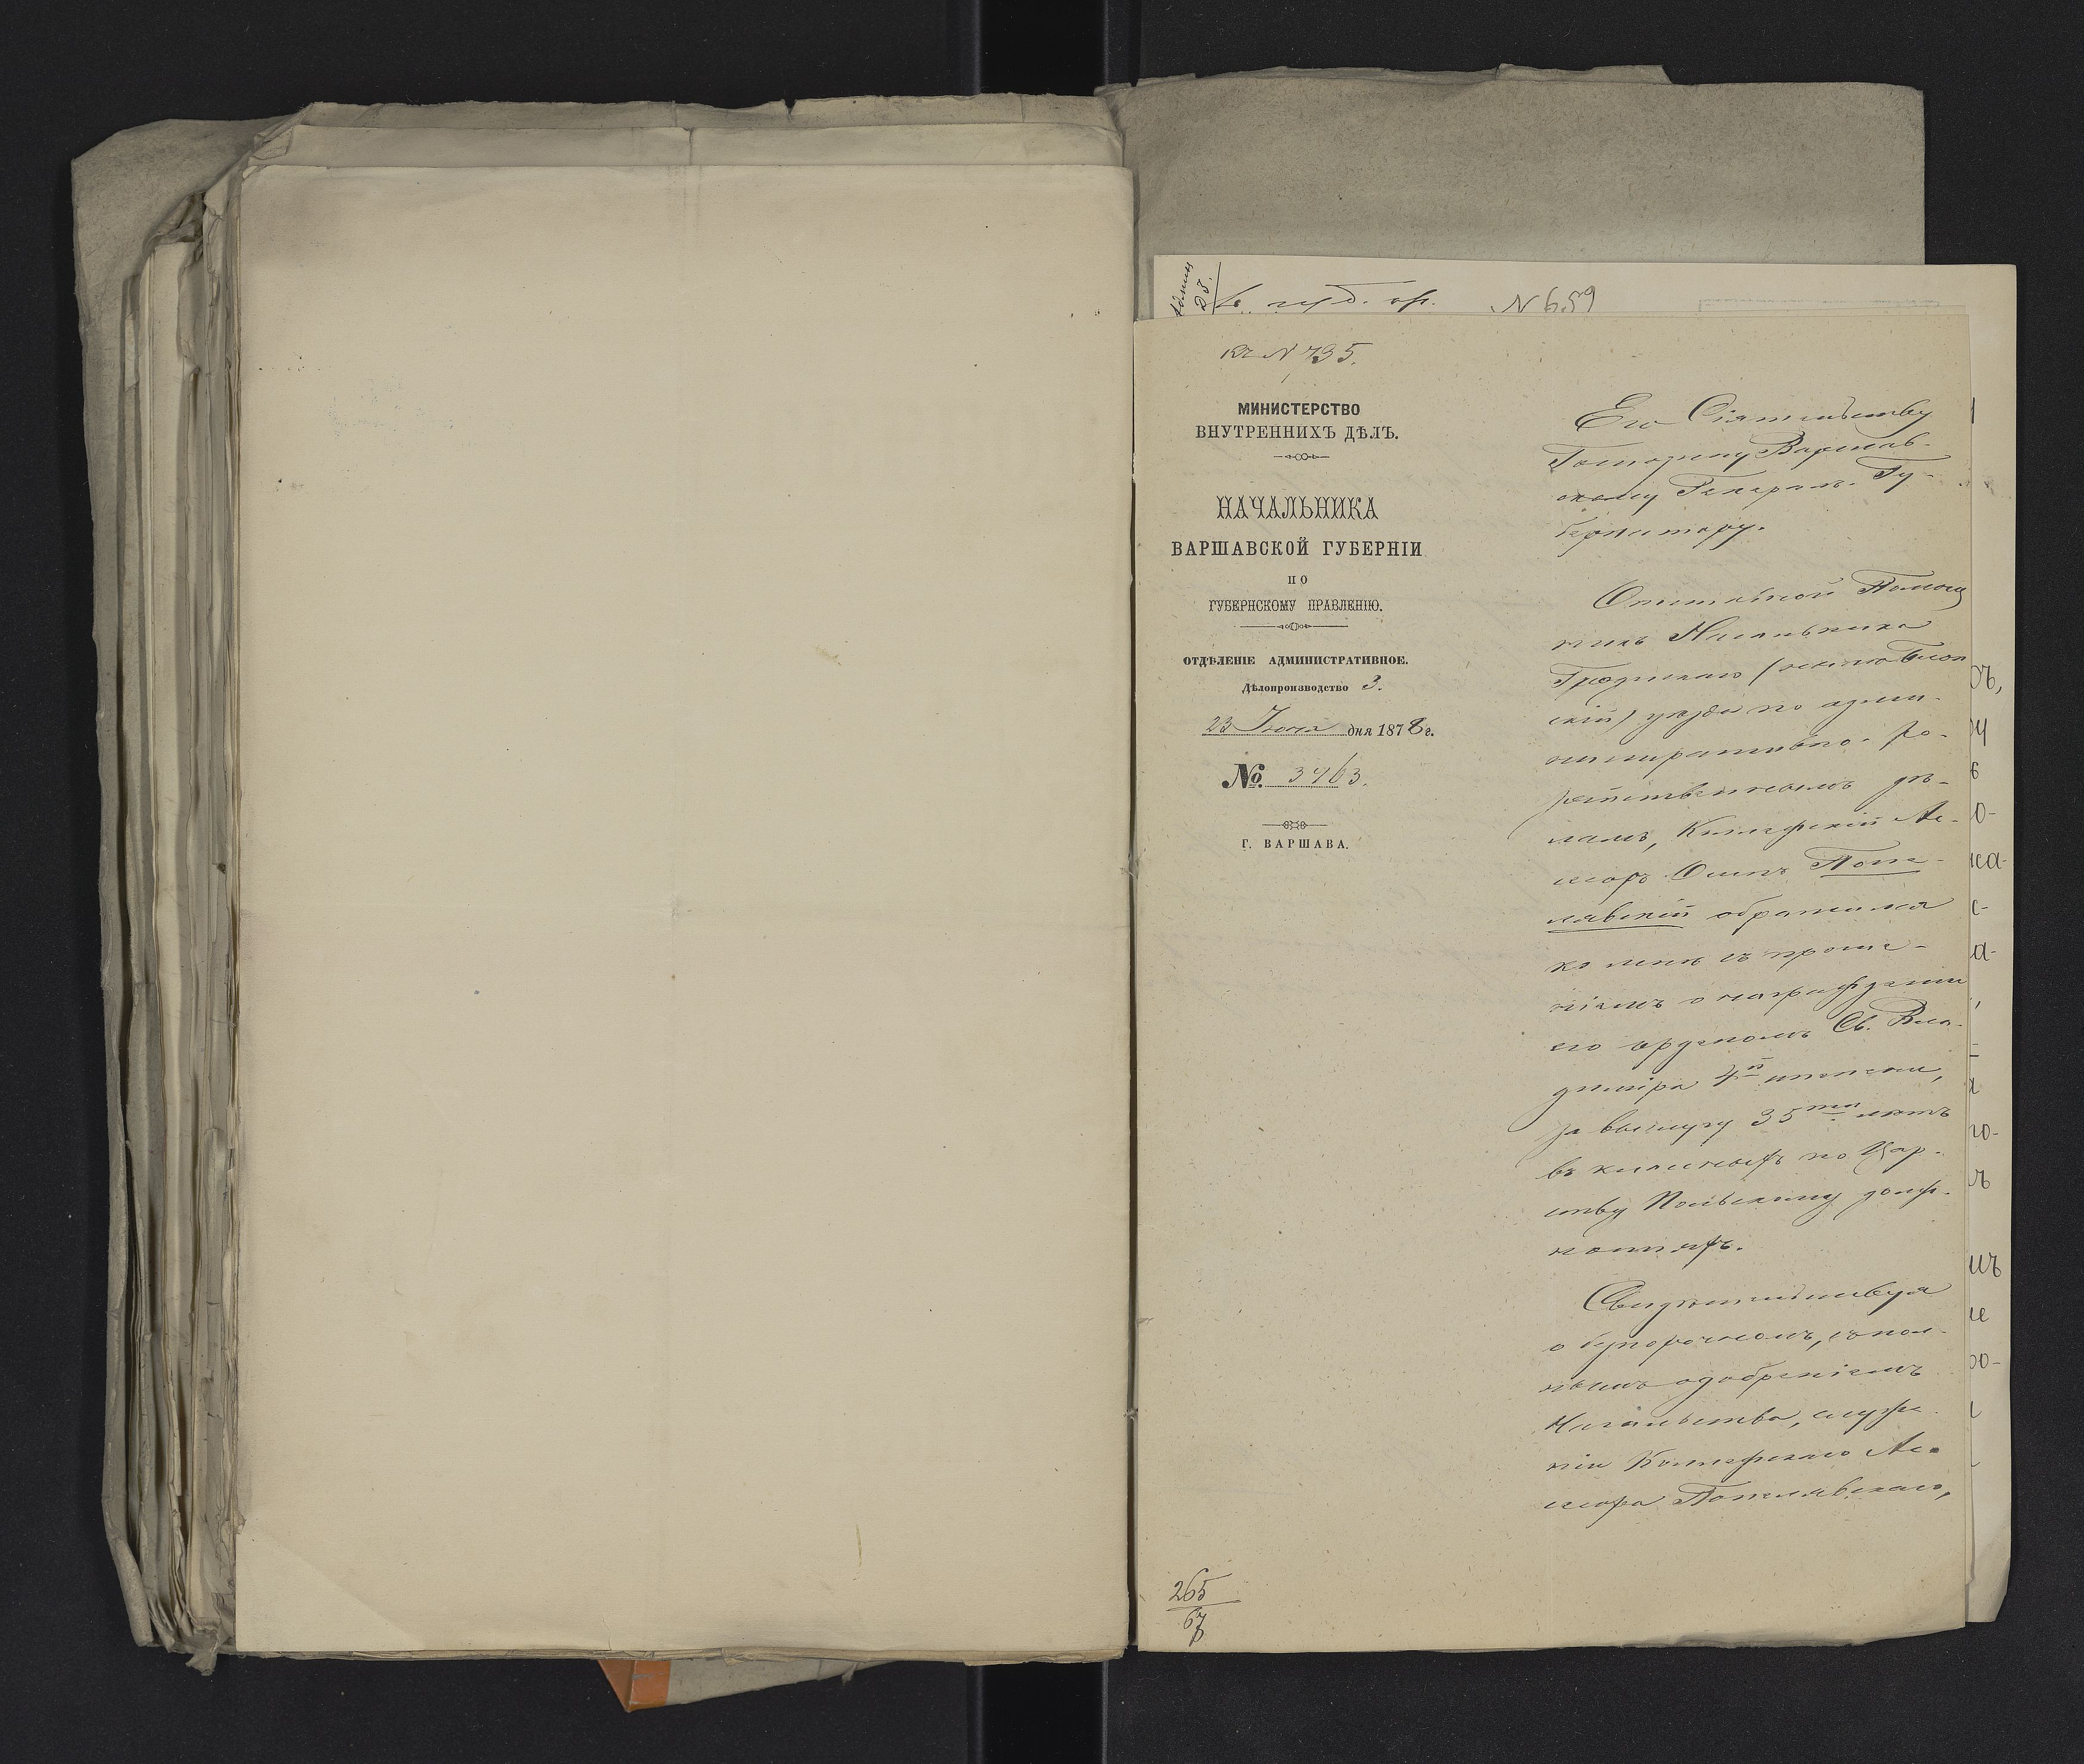 въ губ. ор. N 659
къ N 795.
МИНИСТЕРСТВО
ВНУТРЕННИХЪ ДѢЛЪ.
НАЧАЛЬНИКА
ВАРШАВСКОЙ ГУБЕРНІИ
ПО
ГУБЕРНСКОМУ ПРАВЛЕНІЮ.
ОТДѢЛЕНІЕ АДМИНИСТРАТИВНОЕ.
Дѣлопроизводство 3.
23 Іюня дня 1878 г.
№ 3463.
Г. ВАРШАВА.
Его Сіятельству
Господину Варшав-
скому Генералъ-Гу-
бернатору.
Отставной Помощ
никъ Начальника
Гроднскаго (нынѣ Блон
скій) уѣзда по адми-
нистративно-хо-
зяйственнымъ дѣ-
ламъ, Коллежскій Ас-
сесоръ Осипъ Поп-
лавскій обратился
ко мнѣ съ проше-
ніемъ о награжденіи
его орденомъ Св. Вла-
диміра 4й степени,
за выслугу 35ти лѣтъ
въ классныхъ по Цар-
ству Польскому долж-
ностяхъ.
Свидѣтельствуя
о безпорочномъ, съ пол-
нымъ одобреніемъ
Начальства, служе-
ніи Коллежскаго Ас-
сесора Поплавскаго,
265
67